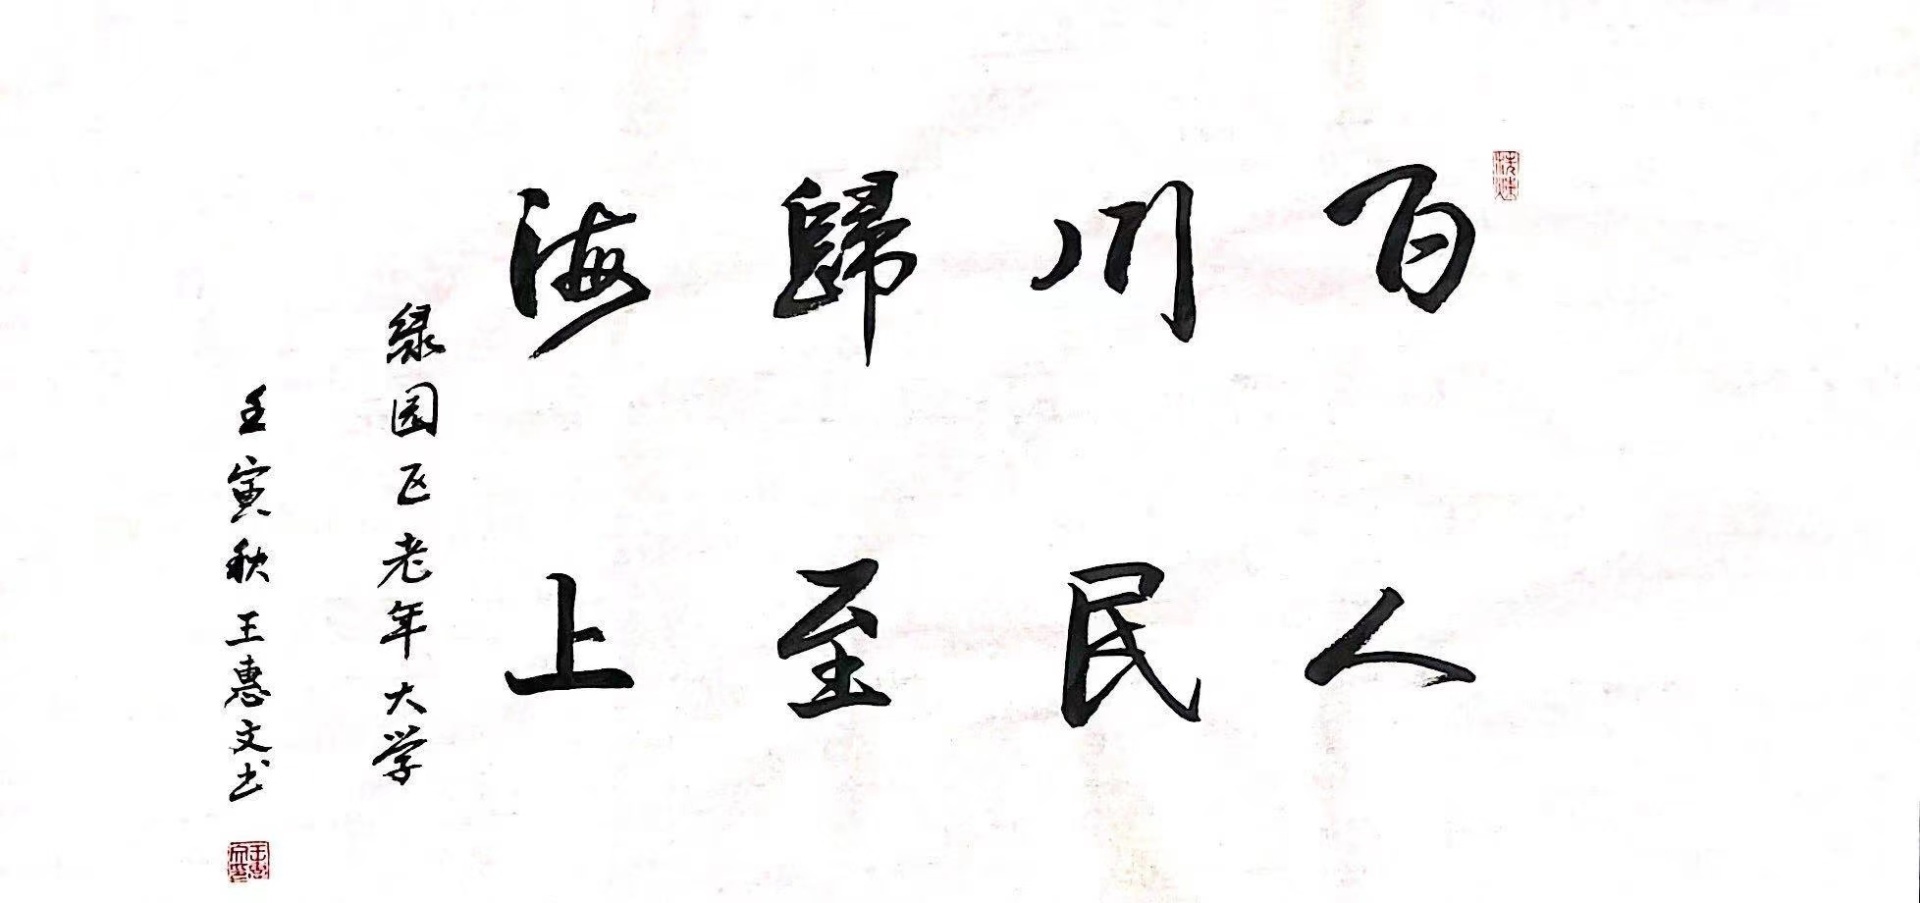 百川歸海
人民至上
緑园区老年大学
壬寅秋王惠文书